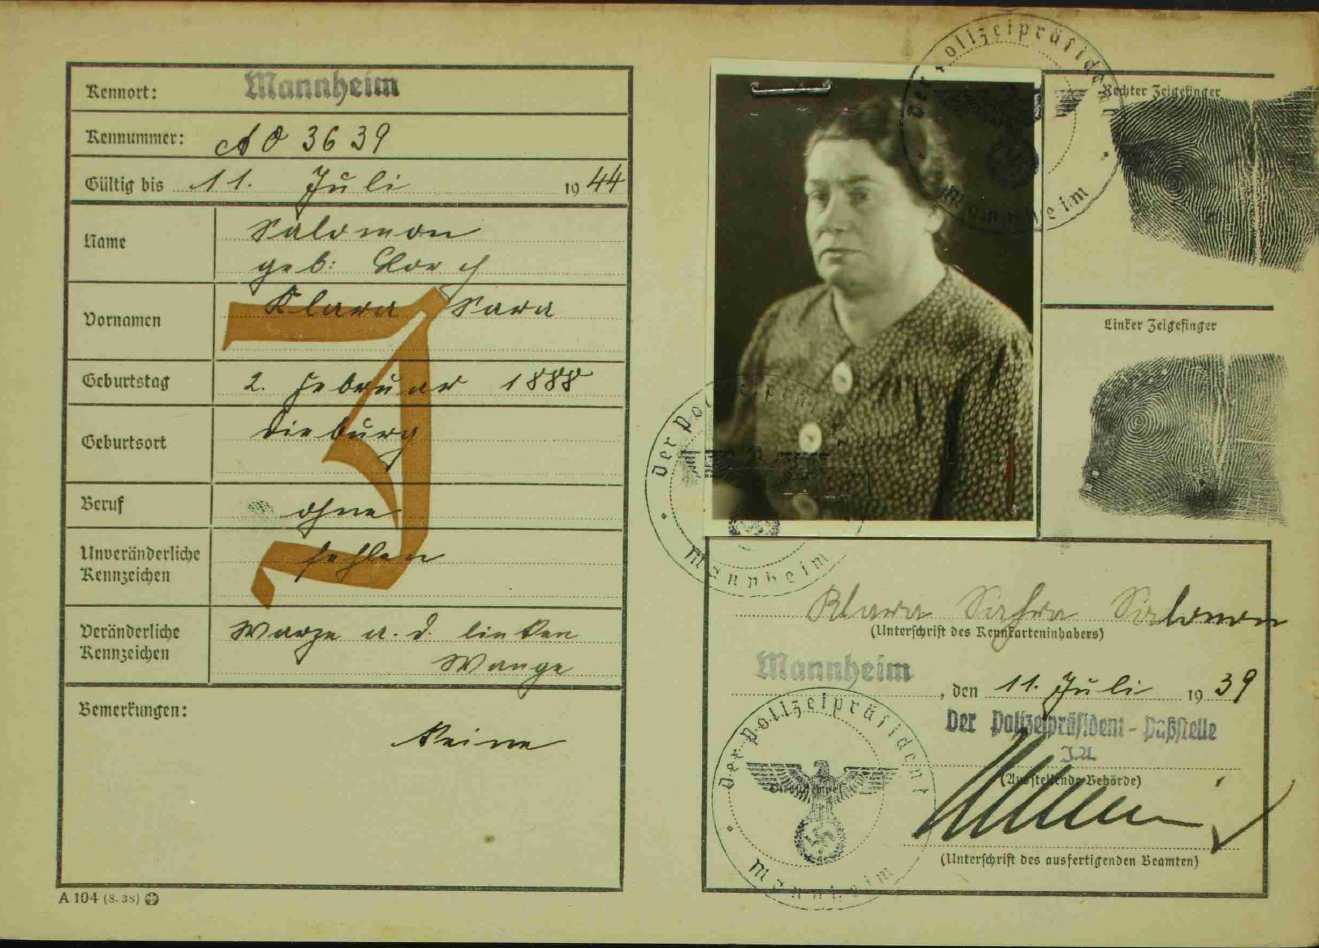 Kennort: Mannheim
Kennummer: A 0 3639
Gültig bis 11. Juli 1944
Name Salomon
geb: Lorch
Vornamen Klara Sara
Geburtstag 2. Februar 1888
Geburtsort Dieburg
Beruf ohne
Unveränderliche Kennzeichen fehlen
Veränderliche Kennzeichen Warze a. d. linken
Wange
Bemerkungen:
Keine
A 104 (8. 38)
J
Der Polizeipräsident
Mannheim
Rechter Zeigefinger
Linker Zeigefinger
Der Polizeipräsident
Mannheim
Klara Sahra Salomon
(Unterschrift des Kennkarteninhabers)
Mannheim, den 11. Juli 1939
Der Polizeipräsident - Paßstelle
I.A.
(Ausstellende Behörde)
(Unterschrift des ausfertigenden Beamten)
Der Polizeipräsident
Mannheim